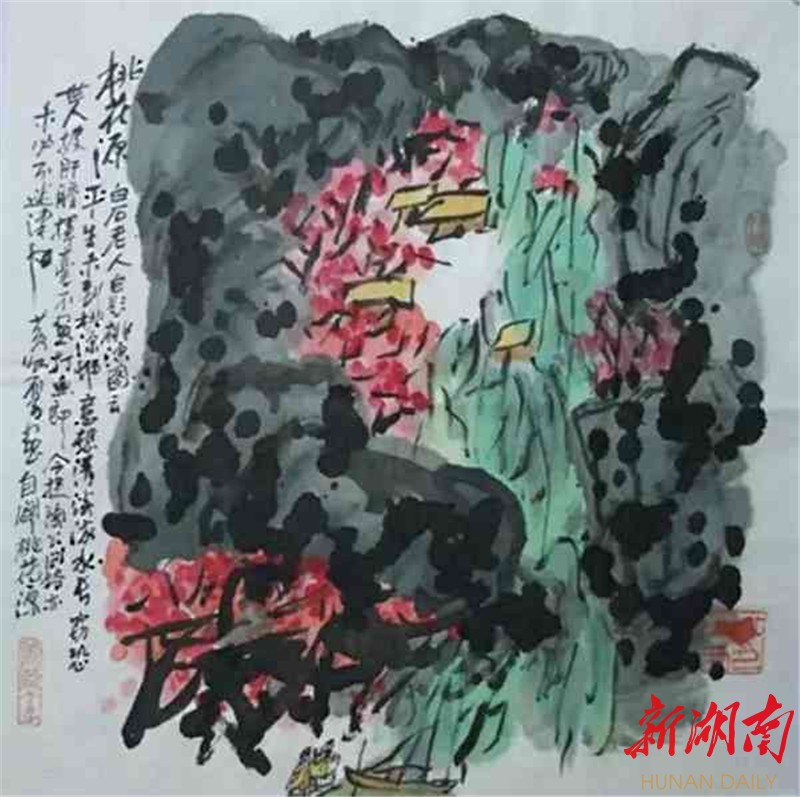 桃花源 白石老人自题桃源图云
平生未到桃源 意想清溪流水长 窃恐
世人披肝胆 挥毫不画打鱼郎 今想陶公问路亦
未必不迷津也 夏画自湖桃花源
新湖南
HUNAN DAILY